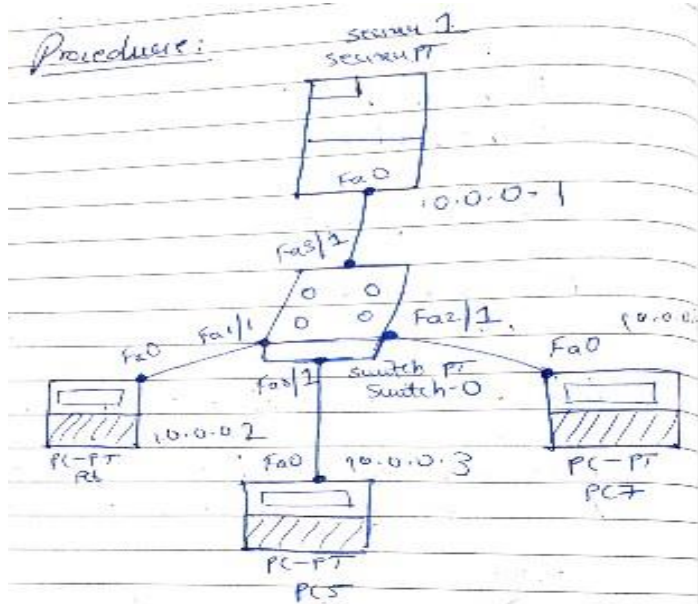 Procedure:
Server 1
Server PT
Fa0
10.0.0.1
Fa3/1
Fa1/1
Fa2/1
Fa0
10.0.0.
Fa0
Switch PT
Switch-0
10.0.0.2
PC-PT
Fa0
10.0.0.3
PC-PT
PC7
PC-PT
PC5